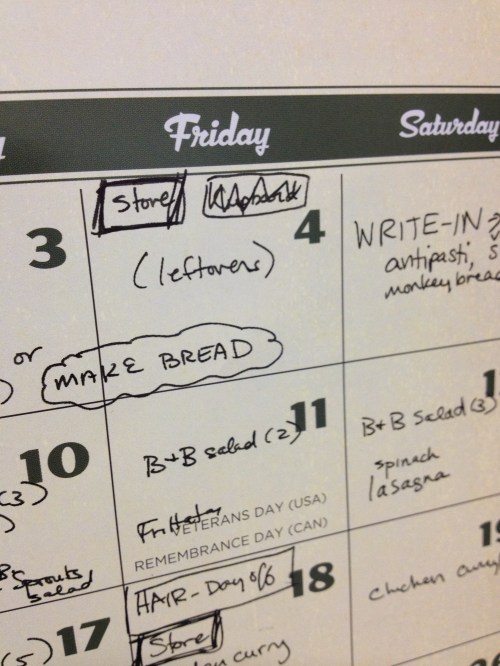 Friday
Saturday
3
Store
4
(leftovers)
WRITE-IN
antipasti,
monkey bread
or
MAKE BREAD
10
(3)
11
B+B salad (2)
Frittata
VETERANS DAY (USA)
REMEMBRANCE DAY (CAN)
B+B salad (3)
spinach
lasagna
sprouts
salad
17
(5)
18
HAIR - Day off
Store
curry
19
chicken curry